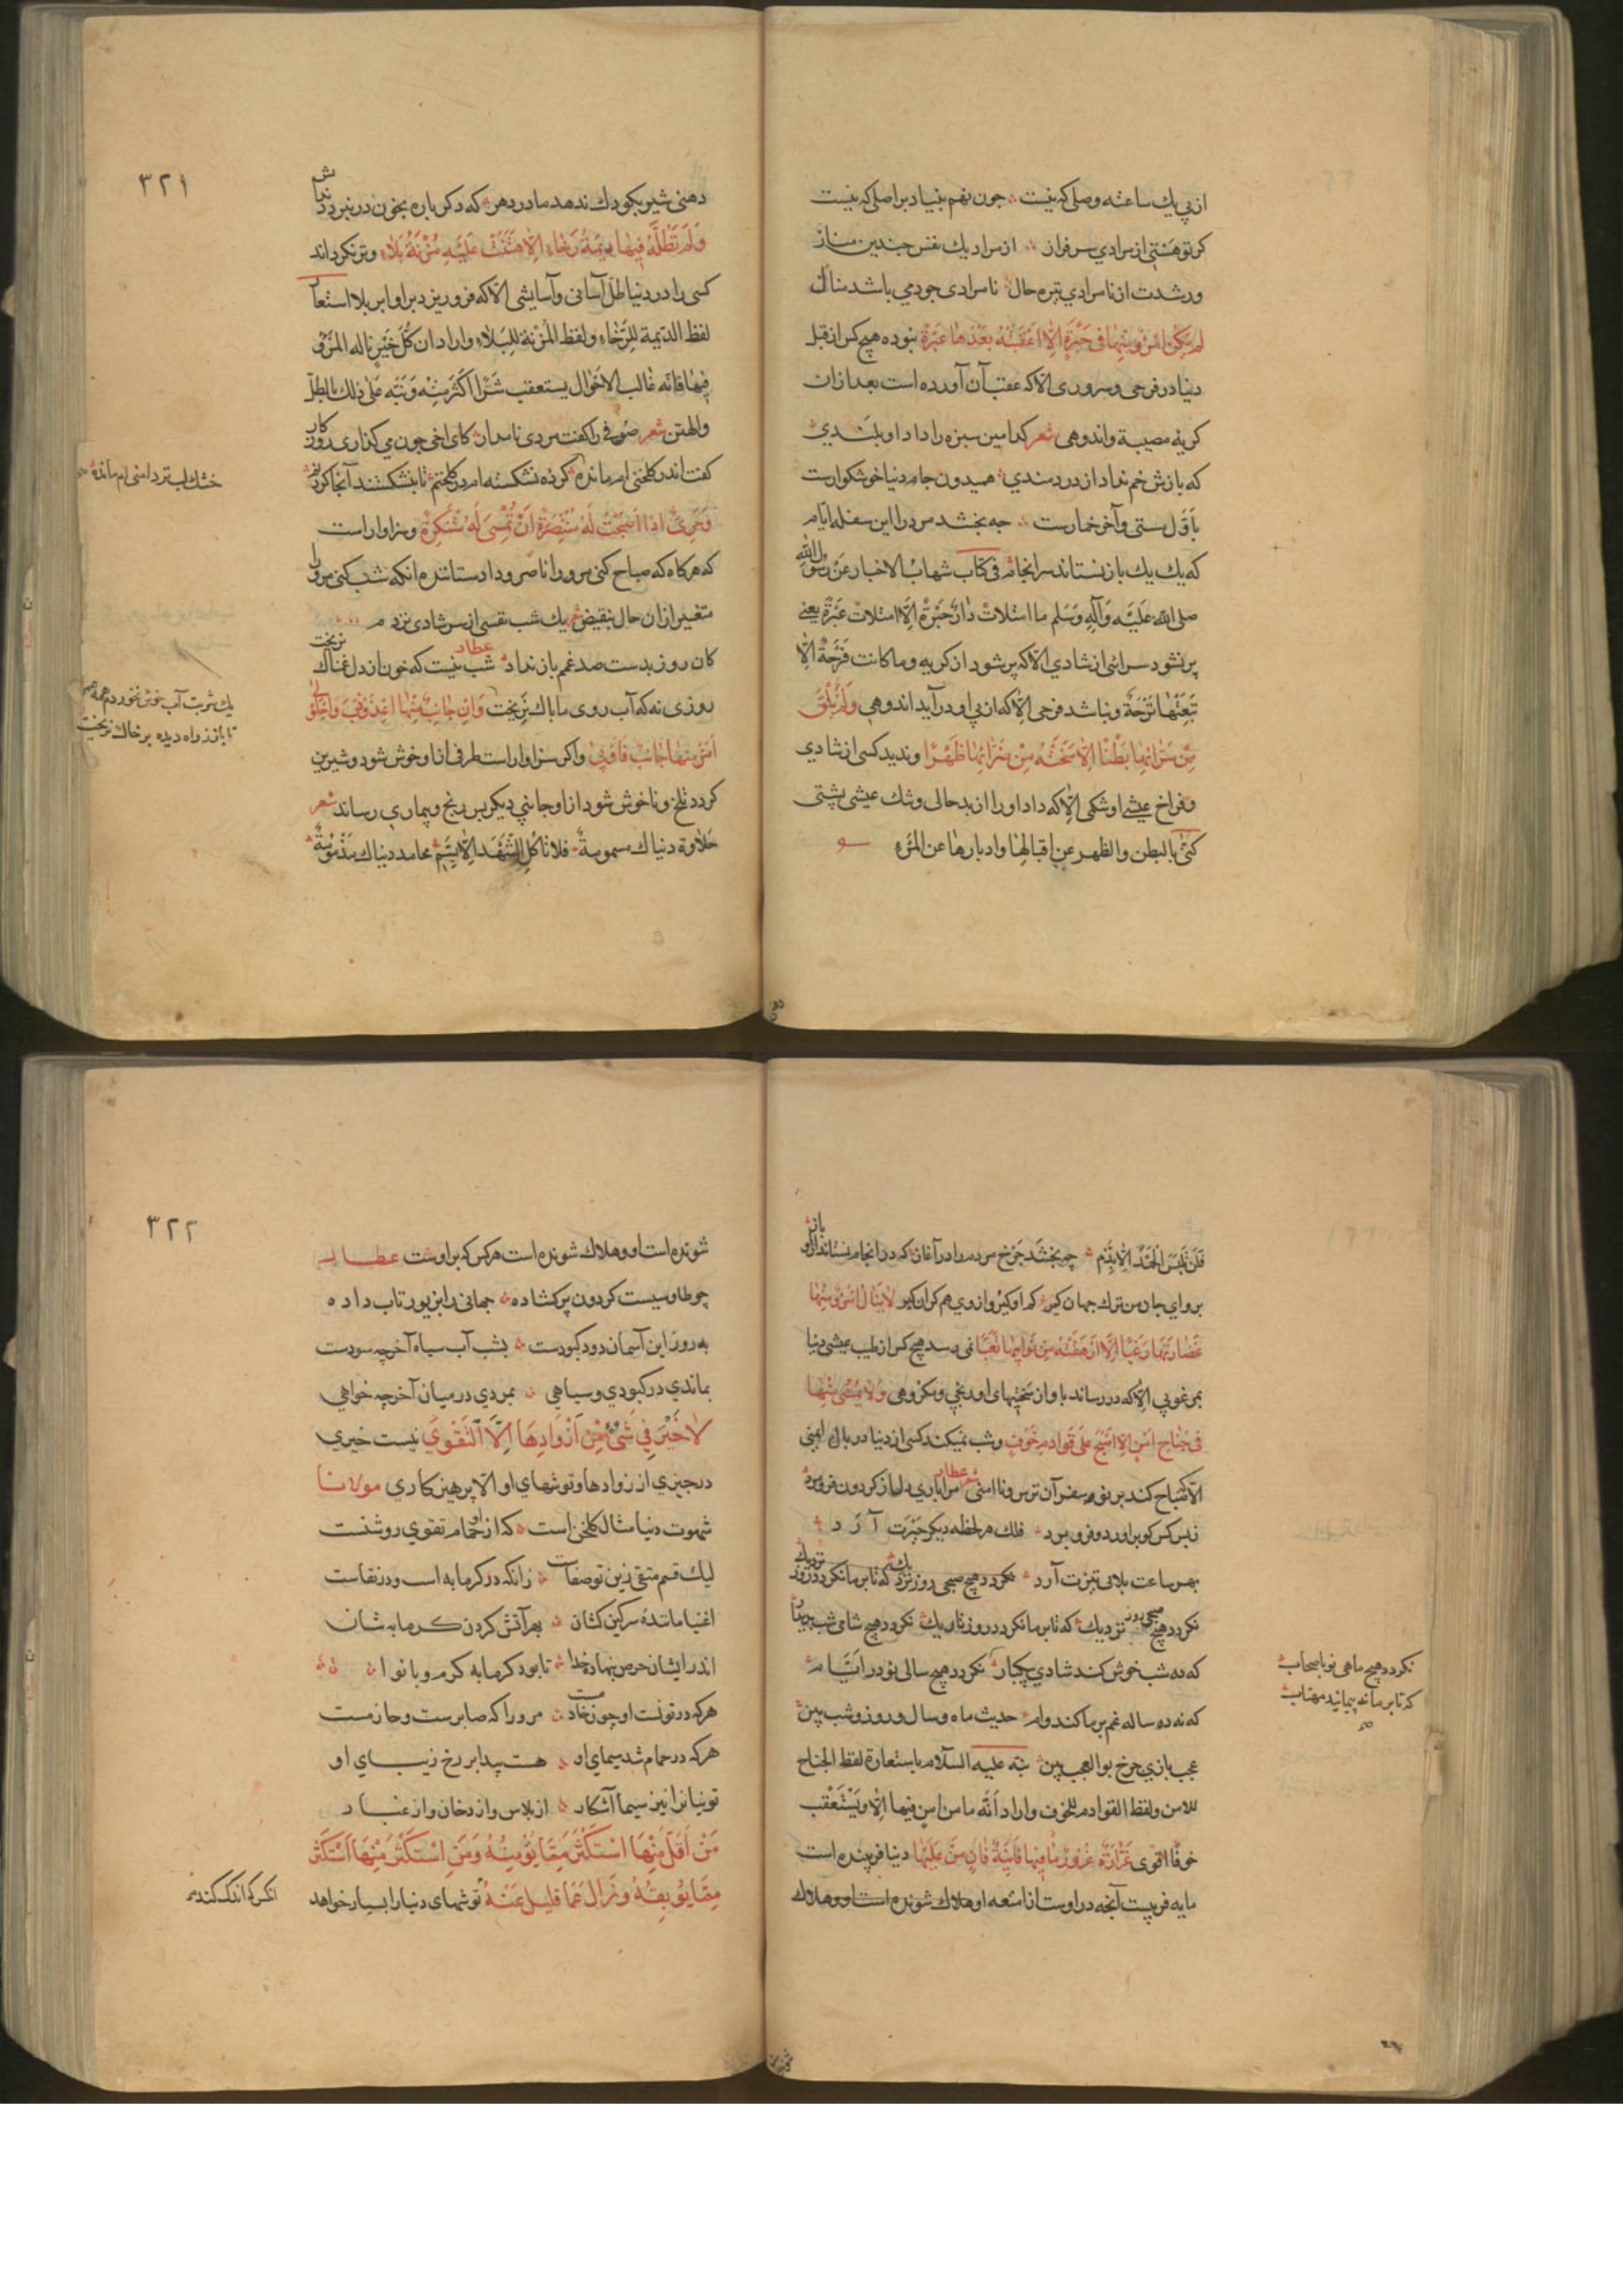 از پی یك ساعته وصلی که نیست جون نهم بنیاد بر اصلی که نیست
کر تو هستی از مرادی سرفراز از مراد یك نفس جندین مناز
ور شدت از نامرادی تیره حال نامرادی جو دمی باشد منال
لم یکن امرؤ منها فی حبرة الا اعقبته بعدها عبرة نبوده هیچ کس از قبل
دنیا در فرحی و سروری الا که عقب آن آورده است بعد از ان
کریه مصیبة و اندوهی شعر کدامین سبزه را داد او بلندی
که بازش خم نداد از دردمندی همیدون جام دنیا خوشکوارست
باول مستی و آخر خمارست جه بخشد مرد را این سفله ایام
که یك یك باز نستاند سرانجام فی کتاب شهاب الاخبار عن رسول الله
صلی الله علیه وآله وسلم ما امتلات دار حبرة الا امتلات عبرة یعنی
پر نشود سرائی از شادی الا که پر شود از کریه وما کانت فرحة الا
تبعتها ترحة و نباشد فرحی الا که از پی او درآید اندوهی ولم یلق
من سرائها بطنا الا منحته من ضرائها ظهرا و ندید کسی از شادی
و فراخ عیشی او شکمی الا که داد او را از بدحالی و تنك عیشی پشتی
کنی بالبطن والظهر عن اقبالها وادبارها عن المرء
٣٢١
دهنی شیر بکودك ندهد مادر دهر که دکر باره بخون در نبرد دندانش
ولم تطله فیها دیمة رخاء الا هتنت علیه مزنة بلاء و تر نکرداند
کسی را در دنیا طل آسانی و آسایشی الا که فرو ریزد بر او ابر بلا استعار
لفظ الدیمة للرخاء ولفظ المزنة للبلاء واراد ان کل خیر ناله المرء
فیها فانه غالب الاحوال یستعقب شرا اکثر منه ونبه علی ذلك بالطل
والهتن شعر صوفی را کفت مردی نامدار کای اخی چون می کذاری روزکار
کفت اندر کلخنی ام مانده کرده نشکسته ام در کلخنم تا بنشکستند آنجا کردنم
خشك لب تر دامنی ام مانده
وحری اذا اصبحت له منتصرة ان تمسی له متنکرة و سزاوار است
که هرکاه که صباح کنی مر و را ناصر و داد ستاننده انکه شب کنی مر و را
متغیر از ان حال بنقیض شعر یك شب نفسی از سر شادی نزدم
کان روز بدست صد غم باز نداد عطار شب نیست که خون از دل غمناك نریخت
روزی نه که آب روی ما باك نریخت وان جانب منها اعذوذب واحلولی
یك شربت آب خوش نخوردم همه عمر
تا باز ز راه دیده بر خاك نریخت
امر منها جانب فاوبی و اکر سزاوار است طرفی از او خوش شود و شیرین
کردد تلخ و ناخوش شود از او جانبی دیکر پس رنج و بیماری رساند شعر
حلاوة دنیاك مسمومة فلا تاکل الشهد الا بسم محامد دنیاك مذمومة
فلن تلبس الحمد الا بذم چه بخشد چرخ مردم را در آغاز که در انجام نستاند از او باز
برو ای جان من ترك جهان کیر کم او کیر و از وی هم کران کیر لا ینال امرؤ منها
غضارتها رغبا الا ارهقته من نوائبها تعبا نمی رسد هیچ کس از طیب عیشی دنیا
بمرغوبی الا که در رساند باو از سختیهای او رنجی و مکروهی ولا یمسی منها
فی جناح امن الا اصبح علی قوادم خوف و شب نمیکند کسی از دنیا در بال ایمنی
الا صباح کند بر قوادم آن ترس و ناامنی شعر عطار مرا باری دل از کردون فرو مرد
ز بس کس کو براورد و فرو برد فلك هر لحظه دیکر حیرت آرد
بهر ساعت بلائی تیزت آرد نکردد هیچ صبحی روز نزدیك که تا بر ما نکردد روز
نکردد هیچ نزدیك که تا بر ما نکردد روز تاریك نکردد هیچ شامی شب پدیدار
که ده شب خوش کند شادی بیکبار نکردد هیچ سالی نو در ایام
نکردد هیچ ماهی نو باصحاب
که تا بر ما نه پیماند مهتاب
که نه ده ساله غم بر ما کند وام حدیث ماه و سال و روز و شب بین
عجب بازی چرخ بوالعجب بین نبه علیه السلام باستعارة لفظ الجناح
للامن ولفظ القوادم للخوف واراد انه ما من امن فیها الا ویستعقب
خوفا اقوی غرارة غرور ما فیها فانیة فان من علیها دنیا فریبنده است
مایه فریبست آنجه در اوست از امتعه او هلاك شونده است او و هلاك
٣٢٢
شونده است او و هلاك شونده است هرکس که بر اوست عطار
چو طاوسیست کردون پر کشاده جهانی را بزیور تاب داده
به روز این آسمان دود کبودست بشب آب سیاه آخر چه سودست
بماندی در کبودی و سیاهی بمردی در میان آخر چه خواهی
لا خیر فی شیء من ازوادها الا التقوی نیست خیری
در جیزی از زوادها و توشهای او الا پرهیزکاری مولانا
شهوت دنیا مثال کلخن است که از او حمام تقوی روشنست
لیك قسم متقی زین تو صفاست زانکه در کرمابه است و در نقاست
اغنیا ماننده سرکین کشان بهر آتش کردن کرمابه شان
اندر ایشان حرص بنهاده خدا تا بود کرمابه کرم و با نوا
هرکه در تونست او چون خادمست مر و را که صابرست و حازمست
هرکه در حمام شد سیمای او هست پیدا بر رخ زیبای او
تونیانرا نیز سیما آشکار از لباس و از دخان و از غبار
من اقل منها استکثر مما یؤمنه ومن استکثر منها استکثر
مما یوبقه وزال عما قلیل عنه توشهای دنیا را بسیار خواهد
انکس که اندك کند